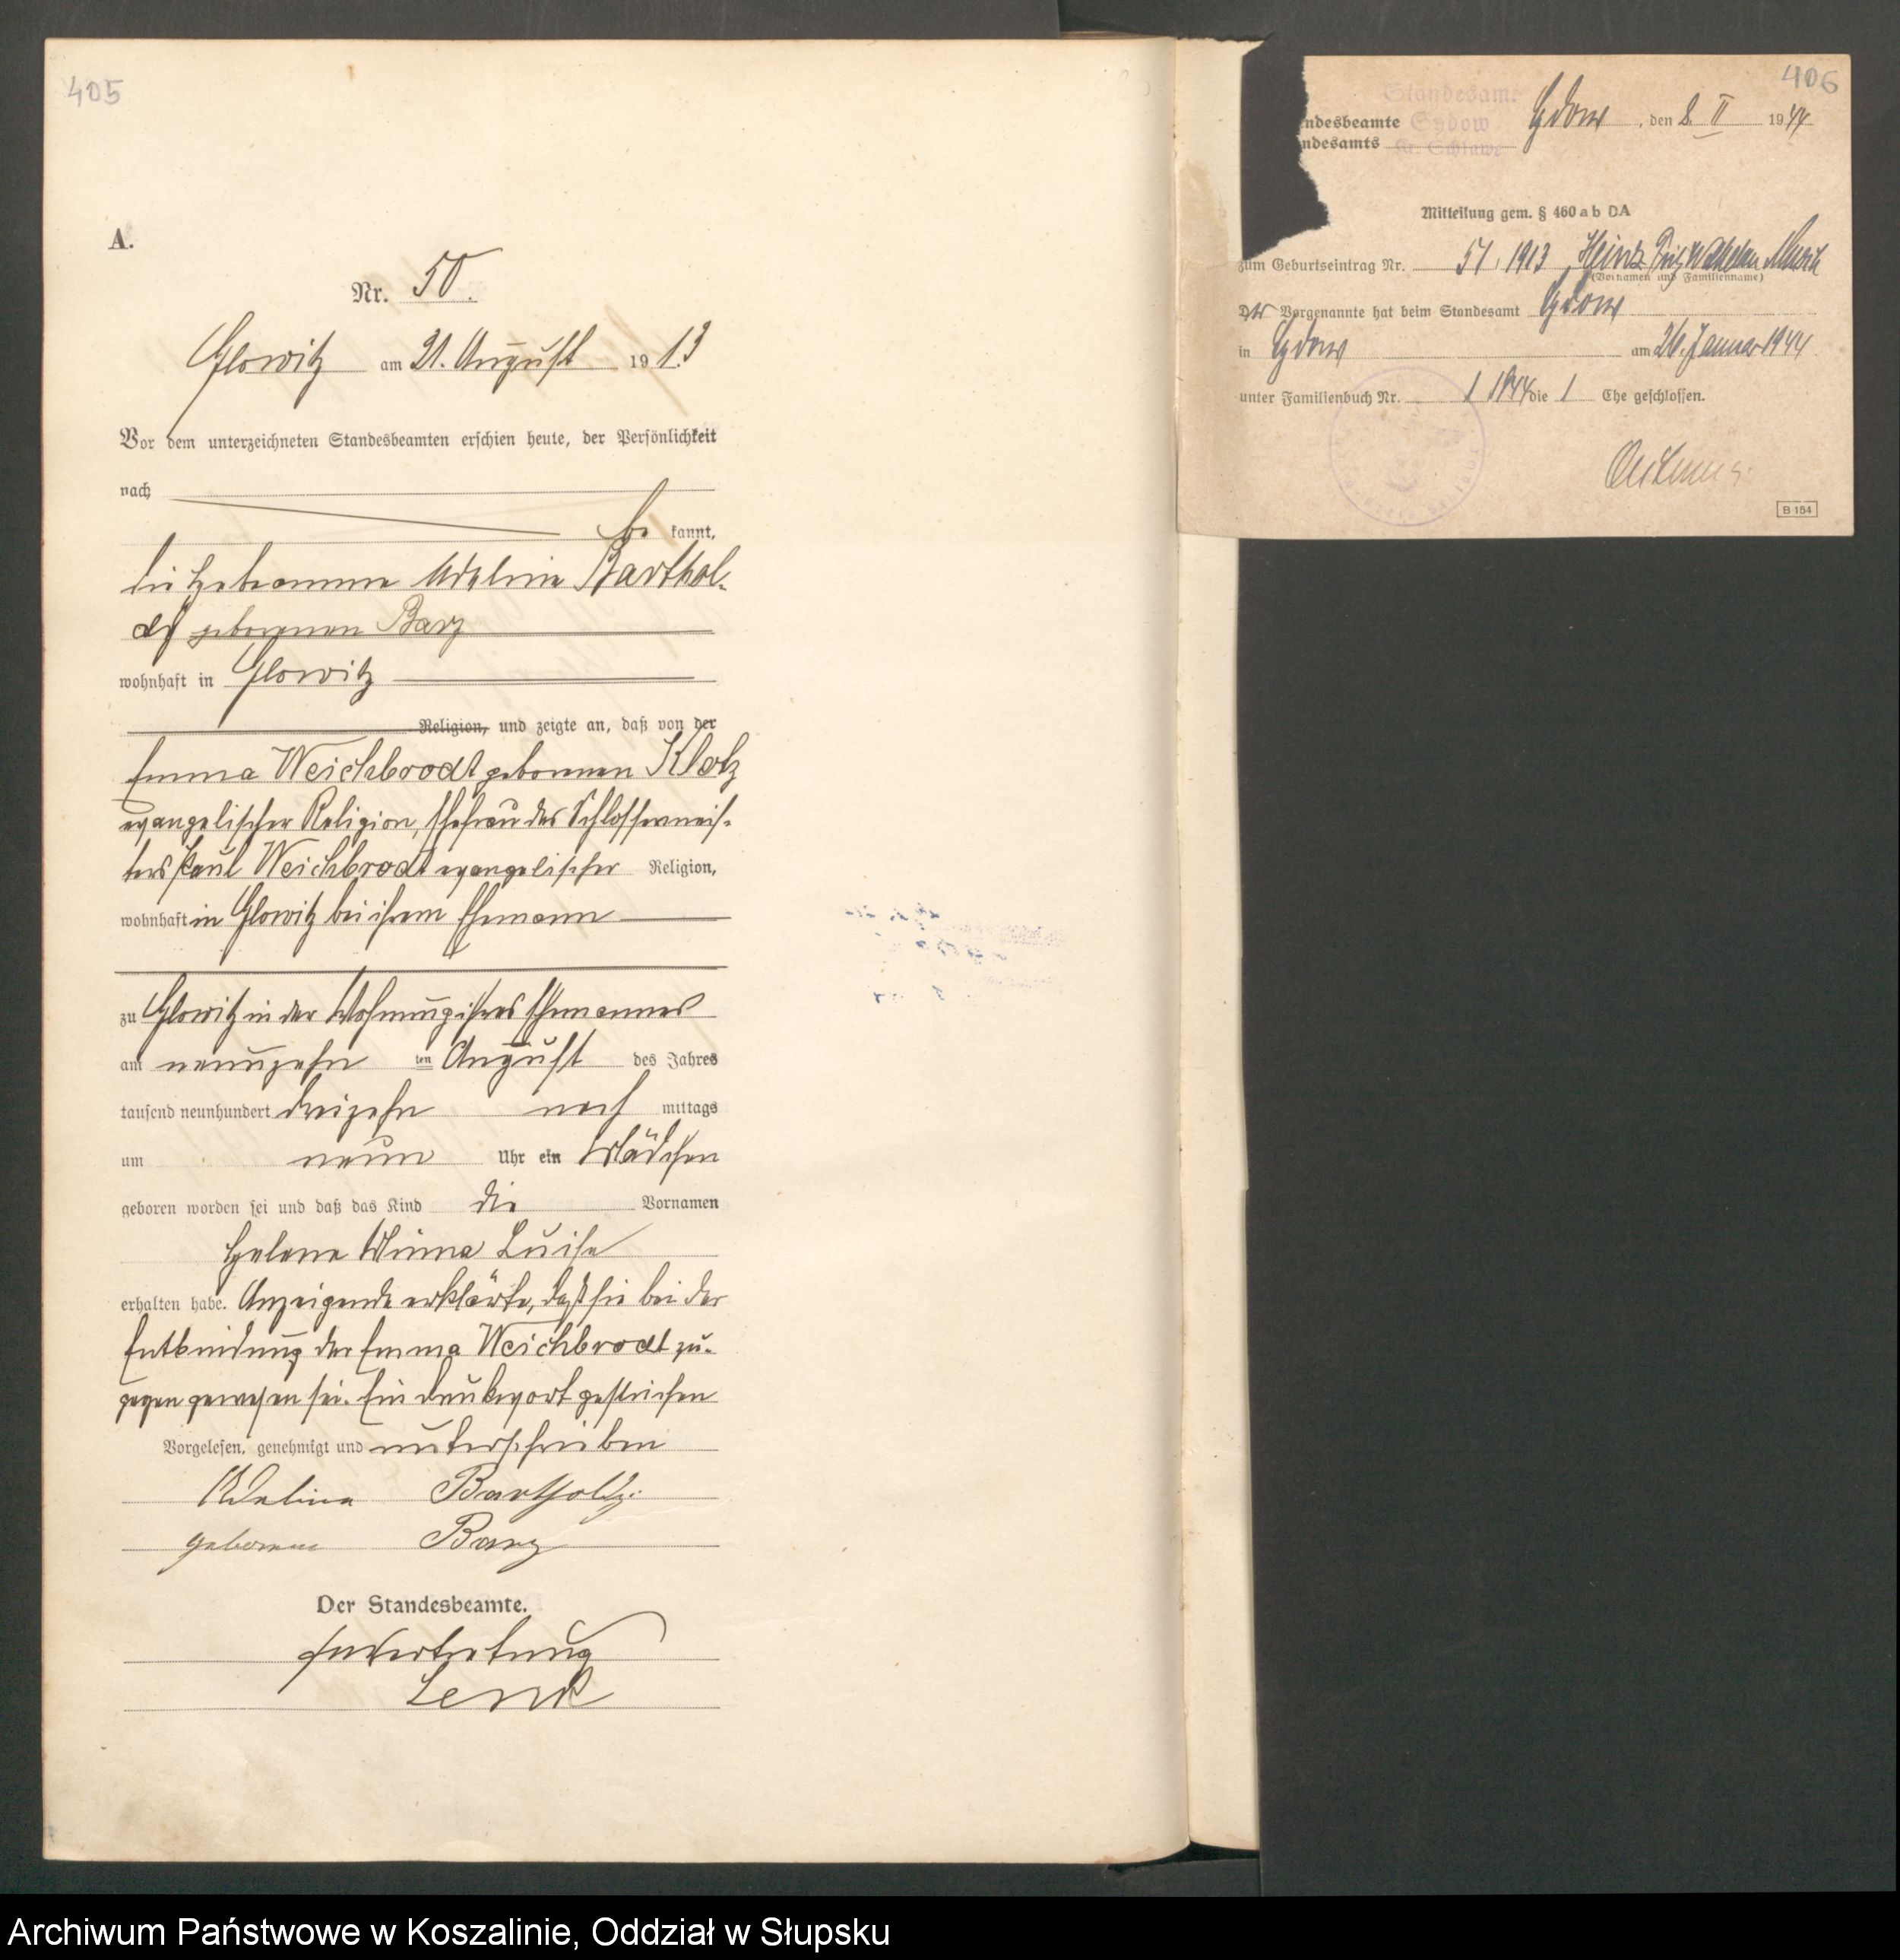 405
A.
Nr. 50.
Glowitz am 21. August 1913
Vor dem unterzeichneten Standesbeamten erschien heute, der Persönlichkeit
nach
be kannt,
die Hebeamme Adeline Barthol-
dy geborenen Barz
wohnhaft in Glowitz
Religion, und zeigte an, daß von der
Emma Weichbrodt geborenen Klotz
evangelischer Religion, Ehefrau des Schlossermeis-
ters Paul Weichbrodt evangelischer Religion,
wohnhaft in Glowitz bei ihrem Ehemann
zu Glowitz in der Wohnung ihres Ehemannes
am neunzehn ten August des Jahres
tausend neunhundert dreizehn nach mittags
um neun Uhr ein Mädchen
geboren worden sei und daß das Kind die Vornamen
Helene Minna Luise
erhalten habe. Anzeigende erklärte, daß sie bei der
Entbindung der Emma Weichbrodt zu-
gegen gewesen sei. Ein Druckwort gestrichen
Vorgelesen, genehmigt und unterschrieben
Adeline Bartholdy.
geborene Barz
Der Standesbeamte.
In Vertretung
Lenk
406
Standesamt
ndesbeamte Sydow Sydow, den 8. II 1944
ndesamts Kr. Schlawe
Mitteilung gem. § 460 a b DA
zum Geburtseintrag Nr. 51, 1913, Heinz Fritz Wilhelm
(Vornamen und Familienname)
Der Vorgenannte hat beim Standesamt Sydow
in Sydow am 26. Januar 1944
unter Familienbuch Nr. 1 1944 die 1 Ehe geschlossen.
B 154
Archiwum Państwowe w Koszalinie, Oddział w Słupsku